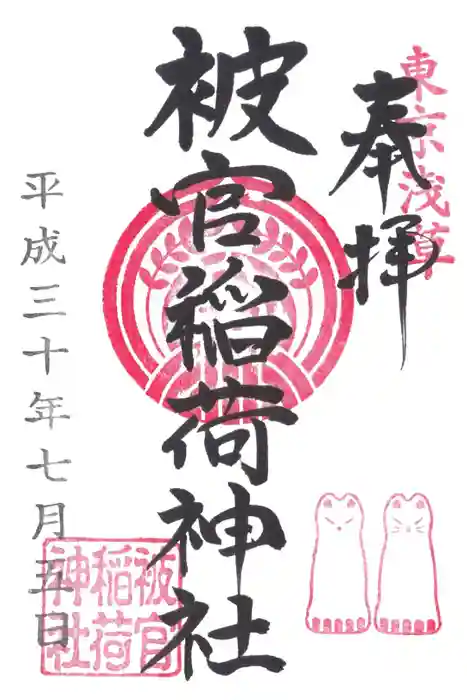 東京浅草
奉拝
被官稲荷神社
被官
稲荷
神社
平成三十年七月五日